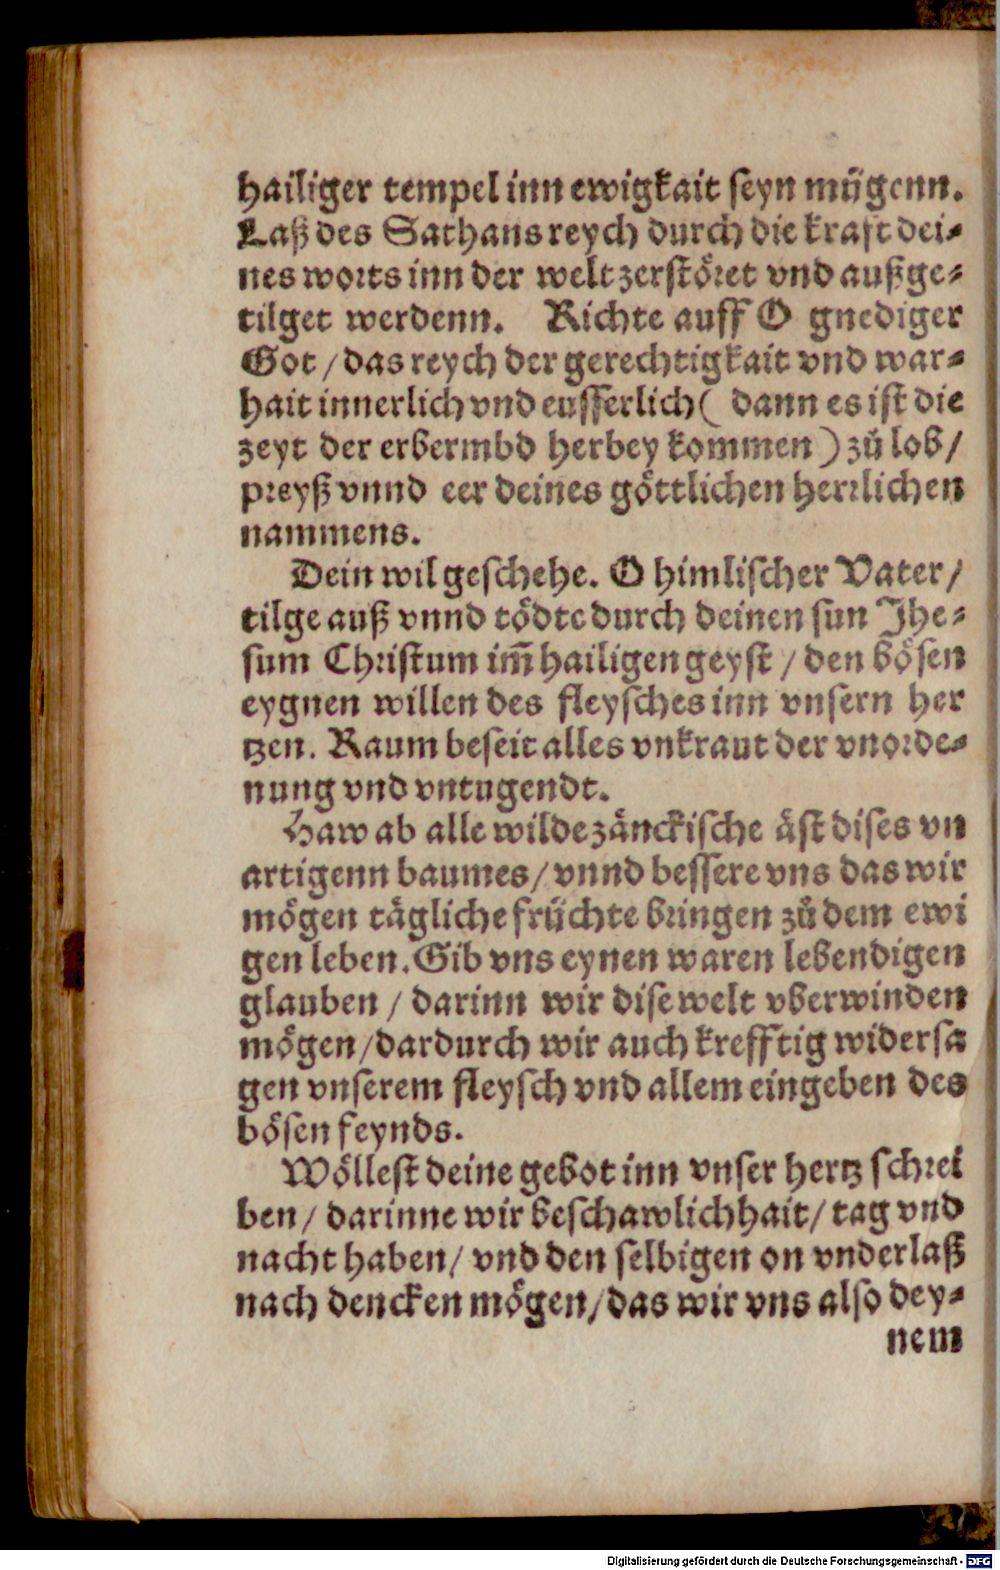 hailiger tempel inn ewigkait seyn mügenn.
Laß des Sathans reych durch die kraft dei⸗
nes worts inn der welt zerstöret vnd außge⸗
tilget werdenn. Richte auff O gnediger
Got / das reych der gerechtigkait vnd war⸗
hait innerlich vnd eusserlich ( dann es ist die
zeyt der erbermbd herbey kommen ) zů lob /
preyß vnnd eer deines göttlichen herrlichen
nammens.
Dein wil geschehe. O himlischer Vater /
tilge auß vnnd tödte durch deinen sun Jhe⸗
sum Christum im̅ hailigen geyst / den bösen
eygnen willen des fleysches inn vnsern her
tzen. Raum beseit alles vnkraut der vnorde⸗
nung vnd vntugendt.
Haw ab alle wilde zänckische äst dises vn
artigenn baumes / vnnd bessere vns das wir
mögen tägliche früchte bringen zů dem ewi
gen leben. Gib vns eynen waren lebendigen
glauben / darinn wir dise welt vberwinden
mögen / dardurch wir auch krefftig widersa
gen vnserem fleysch vnd allem eingeben des
bösen feynds.
Wöllest deine gebot inn vnser hertz schrei
ben / darinne wir beschawlichhait / tag vnd
nacht haben / vnd den selbigen on vnderlaß
nach dencken mögen / das wir vns also dey⸗
nem
Digitalisierung gefördert durch die Deutsche Forschungsgemeinschaft - DFG